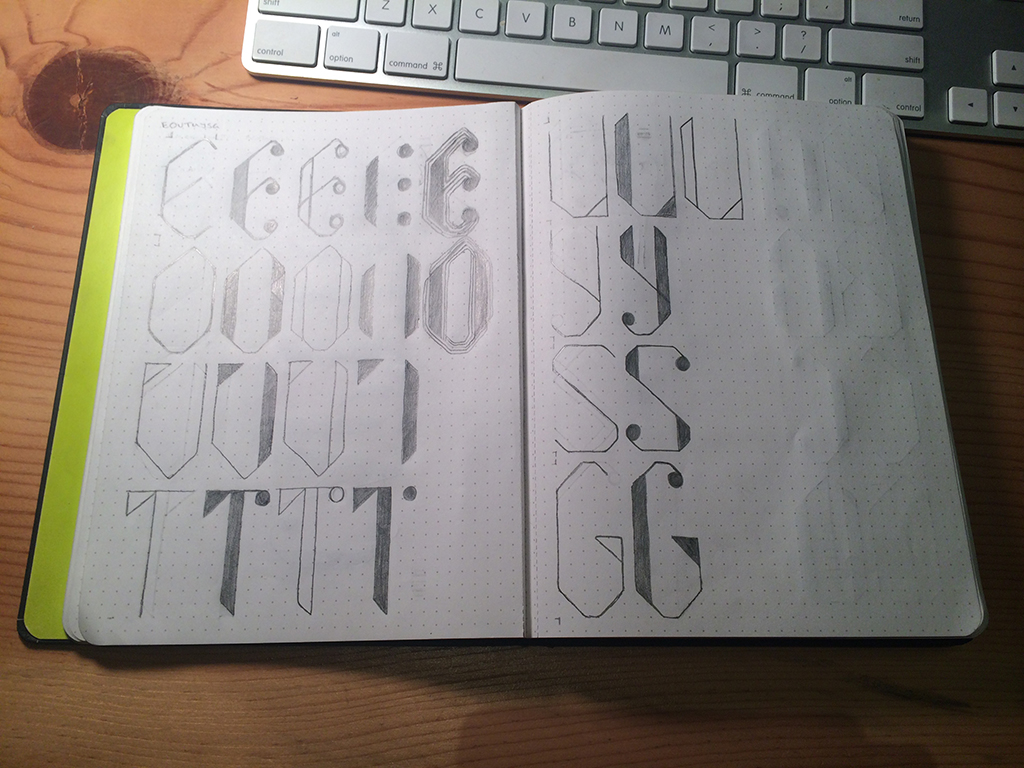 shift Z X C V B N M < , > . ? / return
control alt option command ⌘ ⌘ command alt option control shift
E E E E E
O O O O O
V V V V
T T T T
U U U
Y Y
S S
G G